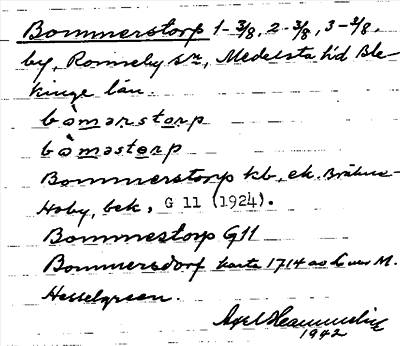 Bommerstorp 1-3/8, 2-3/8, 3-3/8,
by, Ronneby sn, Medelsta hd Ble-
kinge län.
bòmarstorp
bòmastorp
Bommerstorp kb, ek. Bräkne-
Hoby, bek, G 11 (1924).
Bommestorp G11
Bommersdorf karta 1714 as L av M.
Hesselgreen.
1942